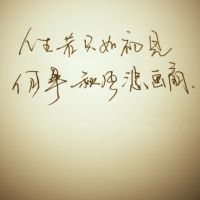 人生若只如初见
何事秋风悲画扇.